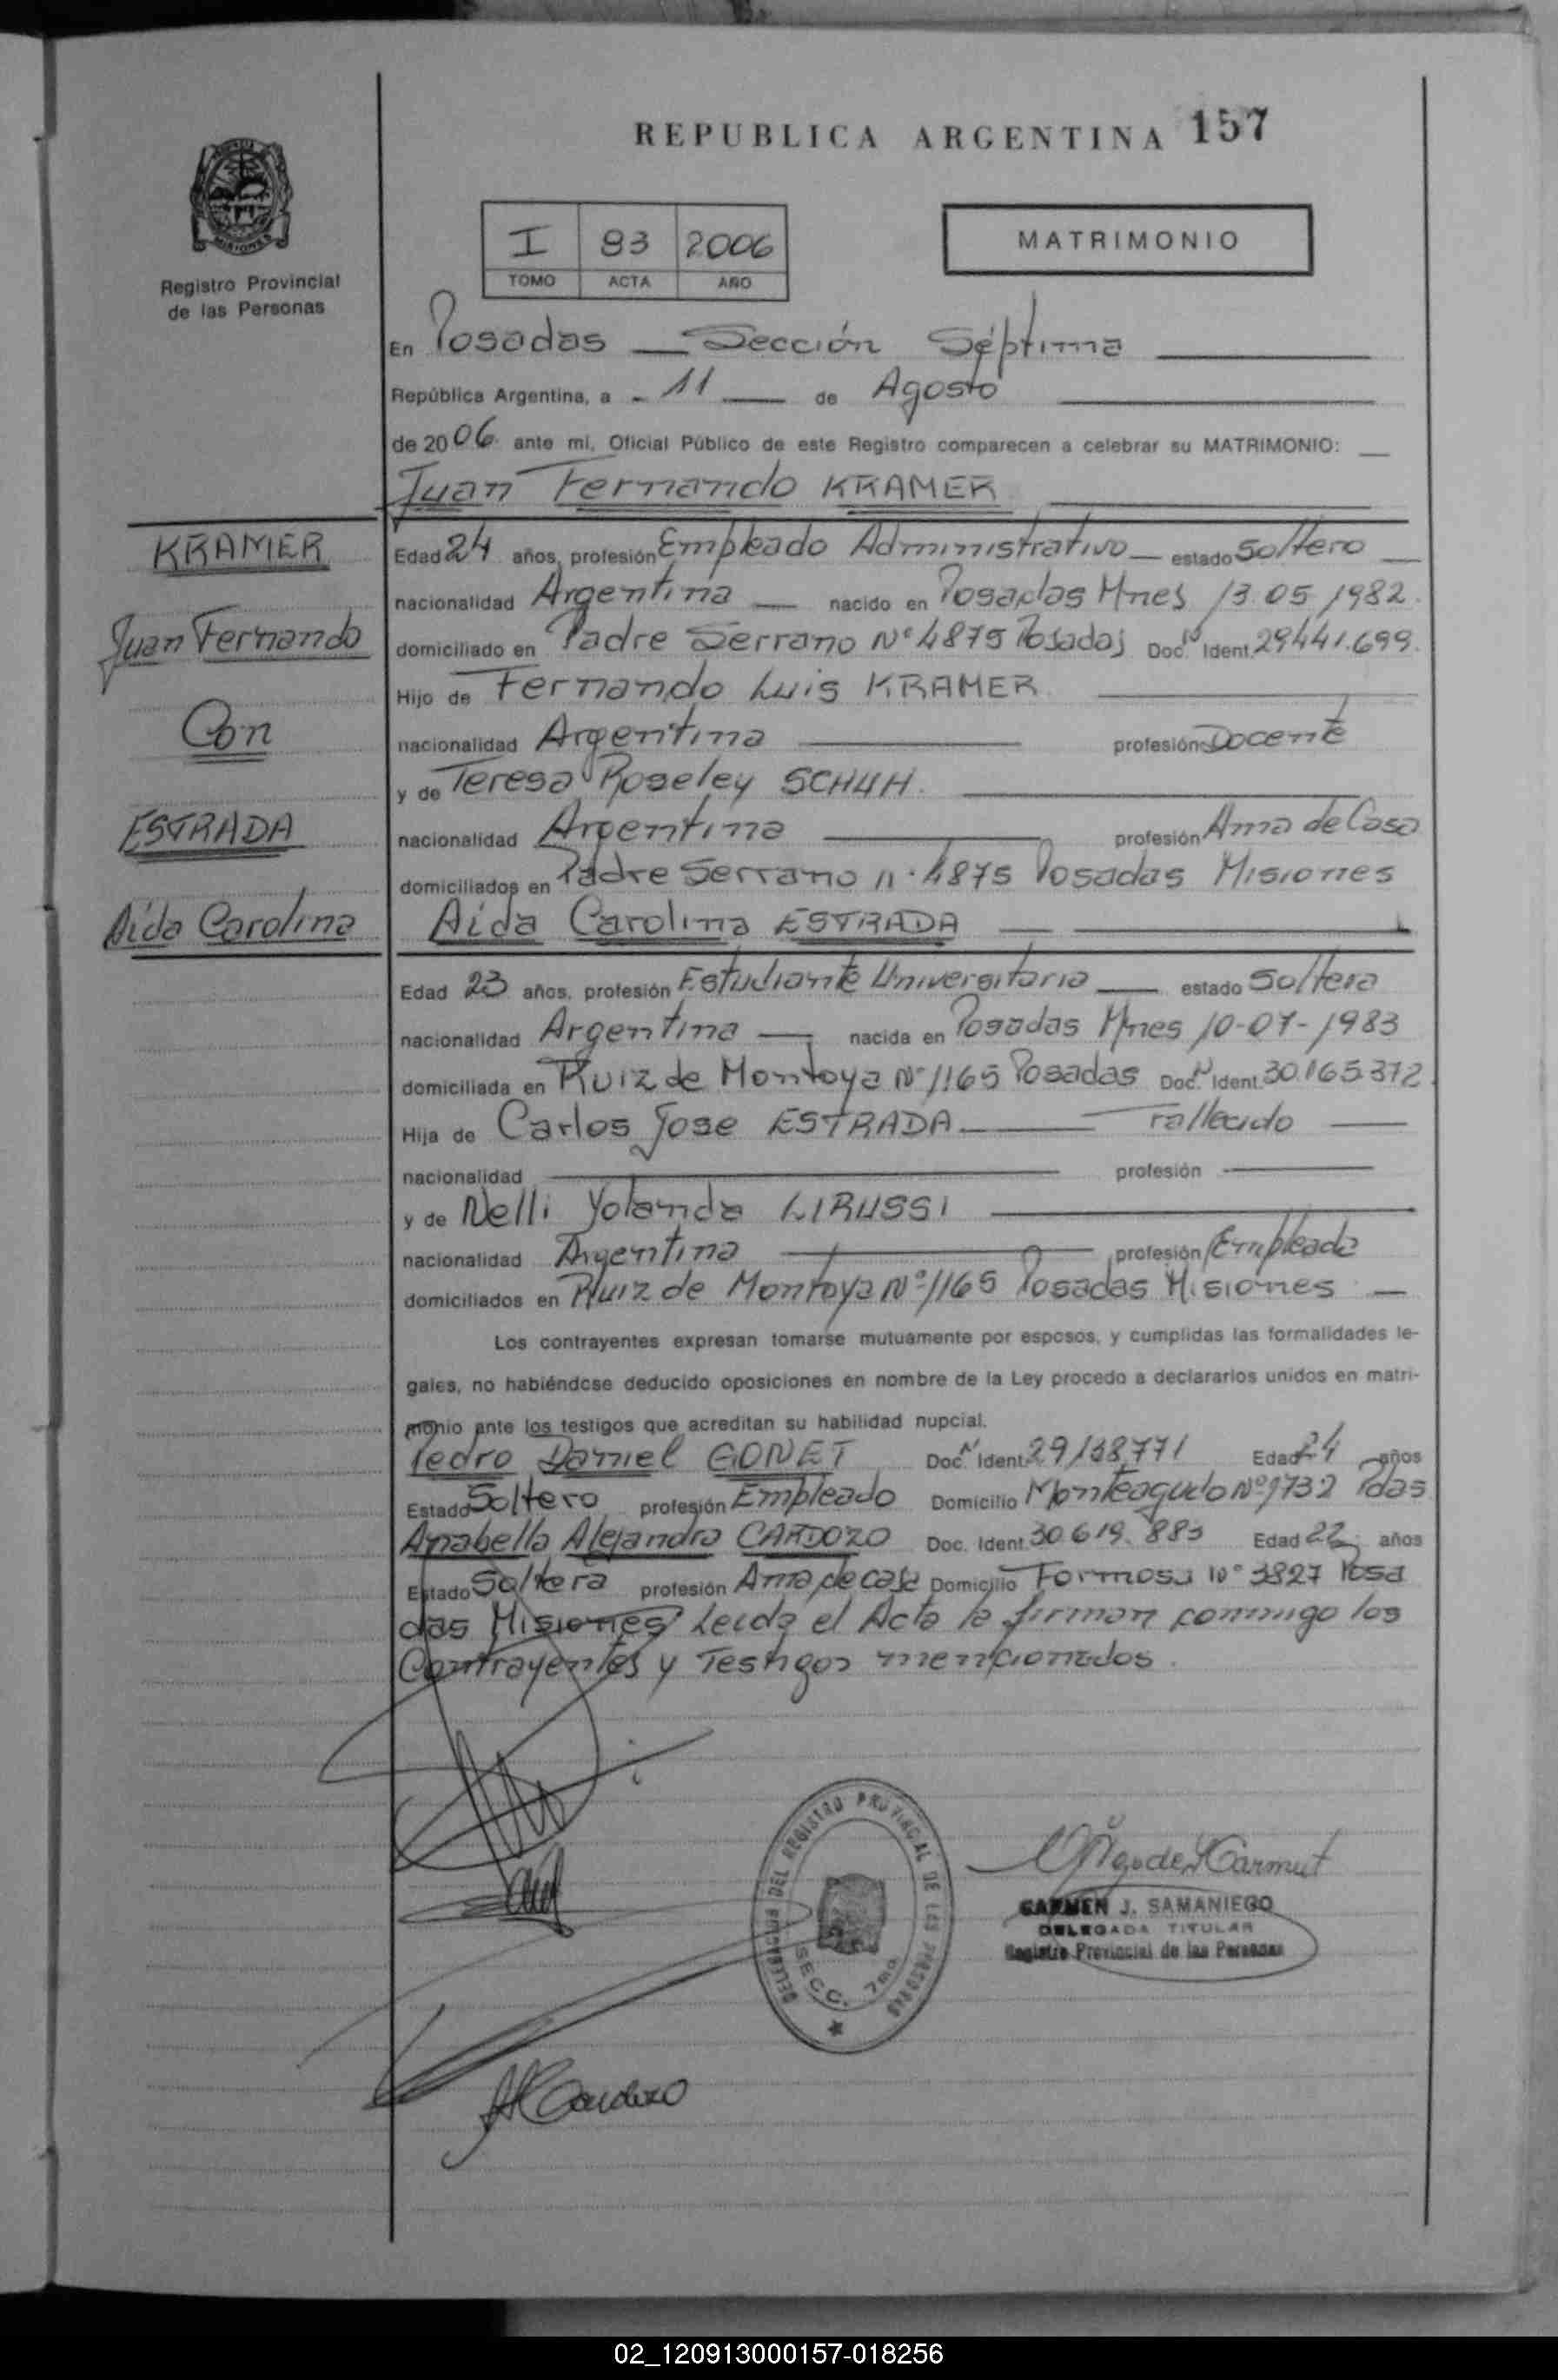 REPUBLICA ARGENTINA 157
Registro Provincial
de las Personas
I 93 2006
TOMO ACTA AÑO
MATRIMONIO
En Posadas — Sección Séptima
República Argentina, a - 11 — de Agosto
de 2006 ante mi, Oficial Público de este Registro comparecen a celebrar su MATRIMONIO:
Juan Fernando KRAMER
KRAMER
Juan Fernando
Con
ESTRADA
Aida Carolina
Edad 24 años, profesión Empleado Administrativo — estado soltero
nacionalidad Argentina — nacido en Posadas Mnes 13.05.1982.
domiciliado en Padre Serrano Nº 4875 Posadas Doc. N Ident. 29441.699.
Hijo de Fernando Luis KRAMER
nacionalidad Argentina profesión Docente
y de Teresa Roseley SCHUH.
nacionalidad Argentina profesión Ama de Casa
domiciliados en Padre Serrano n. 4875 Posadas Misiones
Aida Carolina ESTRADA
Edad 23 años, profesión Estudiante Universitaria — estado Soltera
nacionalidad Argentina — nacida en Posadas Mnes 10-07-1983
domiciliada en Ruiz de Montoya Nº 1165 Posadas Doc. N Ident. 30.165.372.
Hija de Carlos Jose ESTRADA — Fallecido —
nacionalidad — profesión —
y de Nelli Yolanda LIRUSSI
nacionalidad Argentina profesión Empleada
domiciliados en Ruiz de Montoya Nº 1165 Posadas Misiones —
Los contrayentes expresan tomarse mutuamente por esposos, y cumplidas las formalidades le-
gales, no habiéndose deducido oposiciones en nombre de la Ley procedo a declararlos unidos en matri-
monio ante los testigos que acreditan su habilidad nupcial.
Pedro Daniel GONET Doc. N Ident. 29138.771 Edad 24 años
Estado Soltero profesión Empleado Domicilio Monteagudo Nº 1732 Pdas
Anabella Alejandra CARDOZO Doc. Ident. 30 619. 883 Edad 22 años
Estado Soltera profesión Ama de casa Domicilio Formosa Nº 3827 Posa
das Misiones Leida el Acta la firman conmigo los
Contrayentes y Testigos mencionados.
DELEGACION DEL REGISTRO PROVINCIAL DE LAS PERSONAS
SECC. 7ma
CARMEN J. SAMANIEGO
DELEGADA TITULAR
Registro Provincial de las Personas
ACardozo
02_120913000157-018256